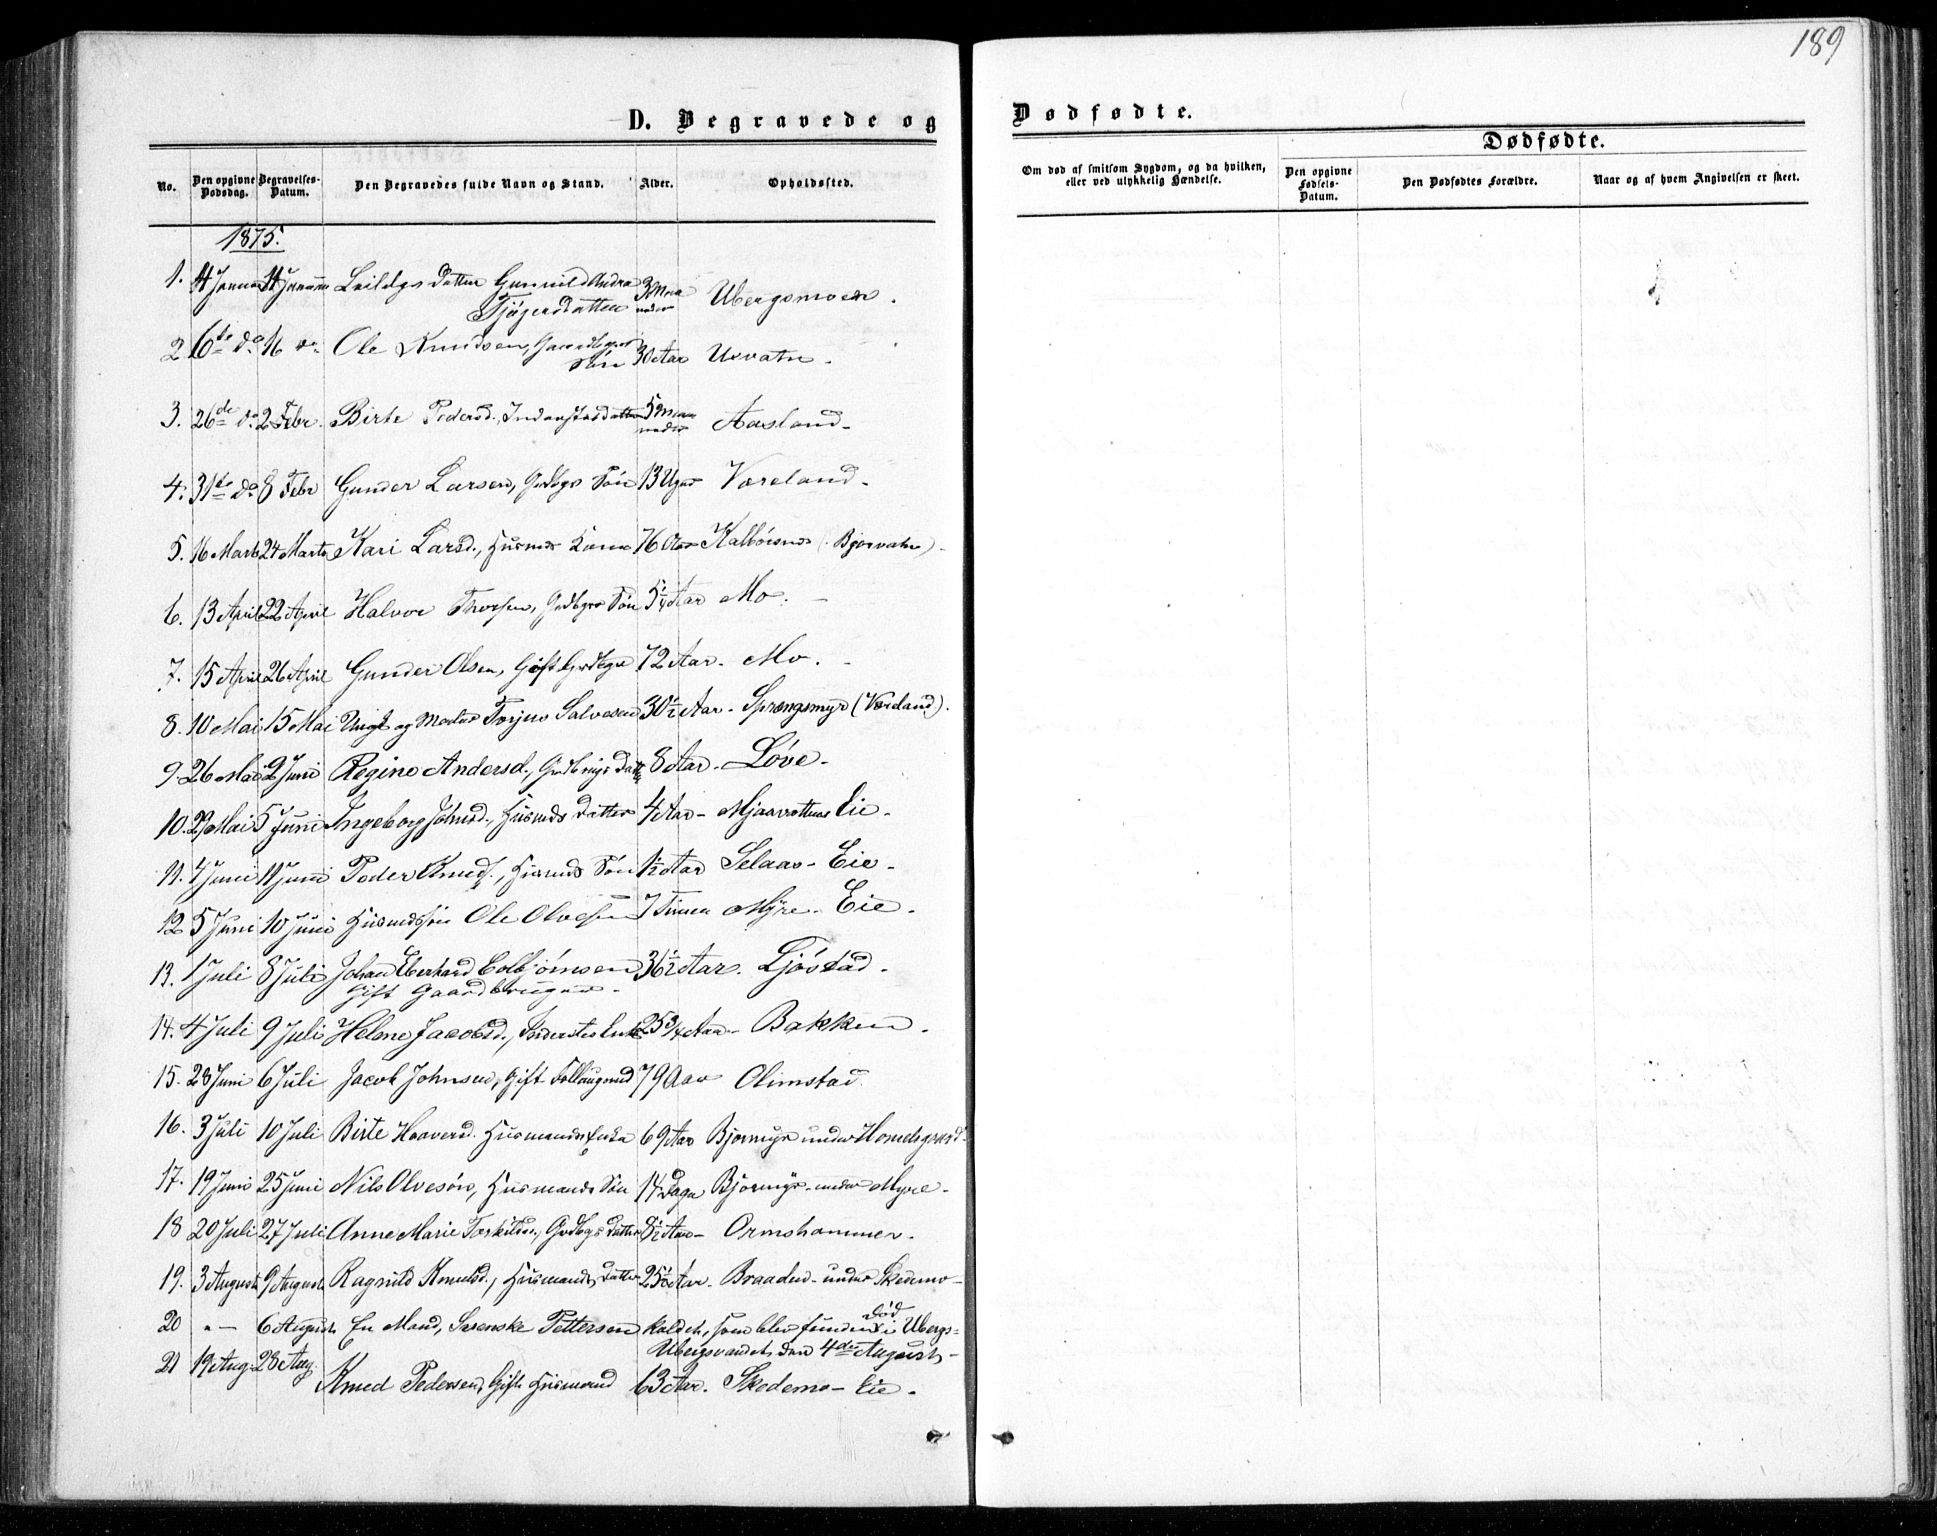 189
D. Begravede og Dødfødte.
Dødfødte.
No. Den opgivne Dødsdag. Begravelses-Datum. Den Begravedes fulde Navn og Stand. Alder. Opholdssted.
Om død af smitsom Sygdom, og da hvilken, eller ved ulykkelig Hændelse. Den opgivne Fødsels-Datum. Den Dødfødtes Forældre. Naar og af hvem Angivelsen er skeet.
1875.
1. 4 Januar 14 Januar Datter Gunnild Andrea
3 Maa neder Ubergsmoen.
2 6te do 16 do Ole Knudsen, Gaardbrugers
Søn 30 Aar Usvatn.
3. 26de do 2 Febr. Birte Pedersd., Inderstes datter 5 Maa
neder Aasland.
4. 31te do 8 Febr Gunder Larsen, Grdbgs Søn 13 Uger Væreland.
5. 16 Marts 24 Marts Kari Larsd., Husmds Kone 76 Aar (Bjorvatn).
6. 13 April 22 April Halvor Thorsen, Grdbgrs Søn 5 1/4 Aar Mo.
7. 15 April 26 April Gunder Olsen, Gift Grdbgr 72 Aar. Mo.
8. 10 Mai 15 Mai Ungk og Matros Torjus Salvesen 30 1/2 Aar. Sprængsmyr (Væreland).
9. 26 Mai 2 Juni Regine Andersd., Grdbrugs Datter 8 Aar. Løve.
10. 29 Mai 5 Juni Ingeborg Johnsd., Husmds Datter 4 Aar Mjaavatnes Eie.
11. 4 Juni 11 Juni Peder Knuds., Husmds Søn 1 1/2 Aar Selaas Eie.
12 5 Juni 10 Juni Husmdssøn Ole Olvesen 7 Timer Myre Eie.
13. 1 Juli 8 Juli Johan Eberhard Colbjørnsen 36 1/2 Aar. Ljøstad.
Gift Gaardbruger.
14. 4 Juli 9 Juli Helene Jacobsd., Inderstes Enke 25 3/4 Aar Bakken.
15. 28 Juni 6 Juli Jacob Johnsen, Gift Follaugmd 79 Aar Olimstad.
16. 3 Juli 10 Juli Birte Haaversd. Husmands Enke 69 Aar Bjormyr under
17. 19 Juni 25 Juni Nils Olvesøn, Husmands Søn 14 Dage Bjormyr under Myre.
18 20 Juli 27 Juli Anne Marie Torkildsd., Grdbgs Datter 8 1/2 Aar Ormshammer.
19. 3 August 9 August Ragnild Knudsd., Husmands Datter 25 Aar. Braaden under Skedemo
20 " 6 August En Mand, Svenske Pettersen kaldet, som blev funden død i Ubergs=
Ubergsvandet den 4de August.
21 19 Aug. 28 Aug. Knud Pedersen, Gift Husmand 63 Aar. Skedemo Eie.